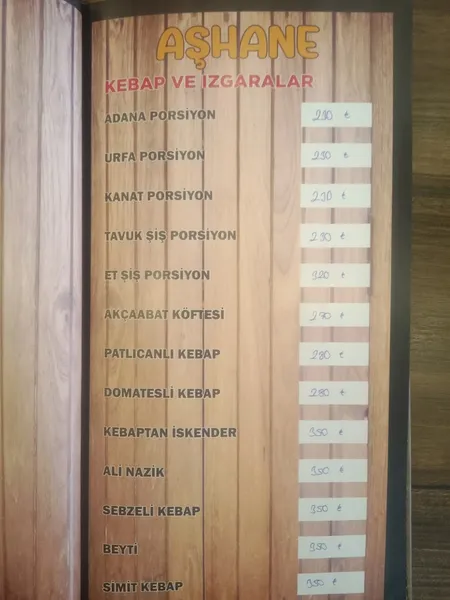 AŞHANE
KEBAP VE IZGARALAR
ADANA PORSİYON 230 ₺
URFA PORSİYON 230 ₺
KANAT PORSİYON 230 ₺
TAVUK ŞİŞ PORSİYON 230 ₺
ET ŞİŞ PORSİYON 320 ₺
AKÇAABAT KÖFTESİ
PATLICANLI KEBAP 280 ₺
DOMATESLİ KEBAP 280 ₺
KEBAPTAN İSKENDER 350 ₺
ALI NAZİK
SEBZELİ KEBAP 350 ₺
BEYTİ 350 ₺
SİMİT KEBAP 350 ₺